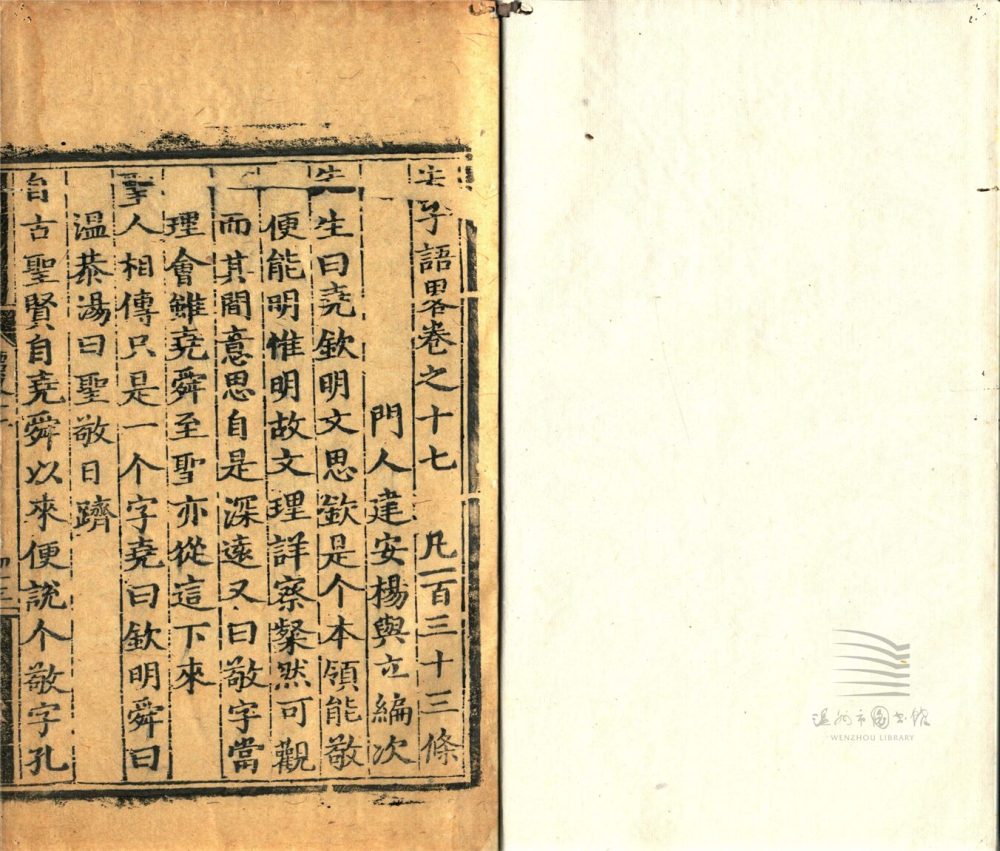 子語畧卷之十七 凡一百三十三條
門人建安楊與立編次
生曰堯欽明文思欽是个本領能敬
便能明惟明故文理詳察粲然可觀
而其間意思自是深遠又曰敬字當
理會雖堯舜至聖亦從這下來
聖人相傳只是一个字堯曰欽明舜曰
溫恭湯曰聖敬日躋
自古聖賢自堯舜以來便說个敬字孔
温州市图书馆
WENZHOU LIBRARY